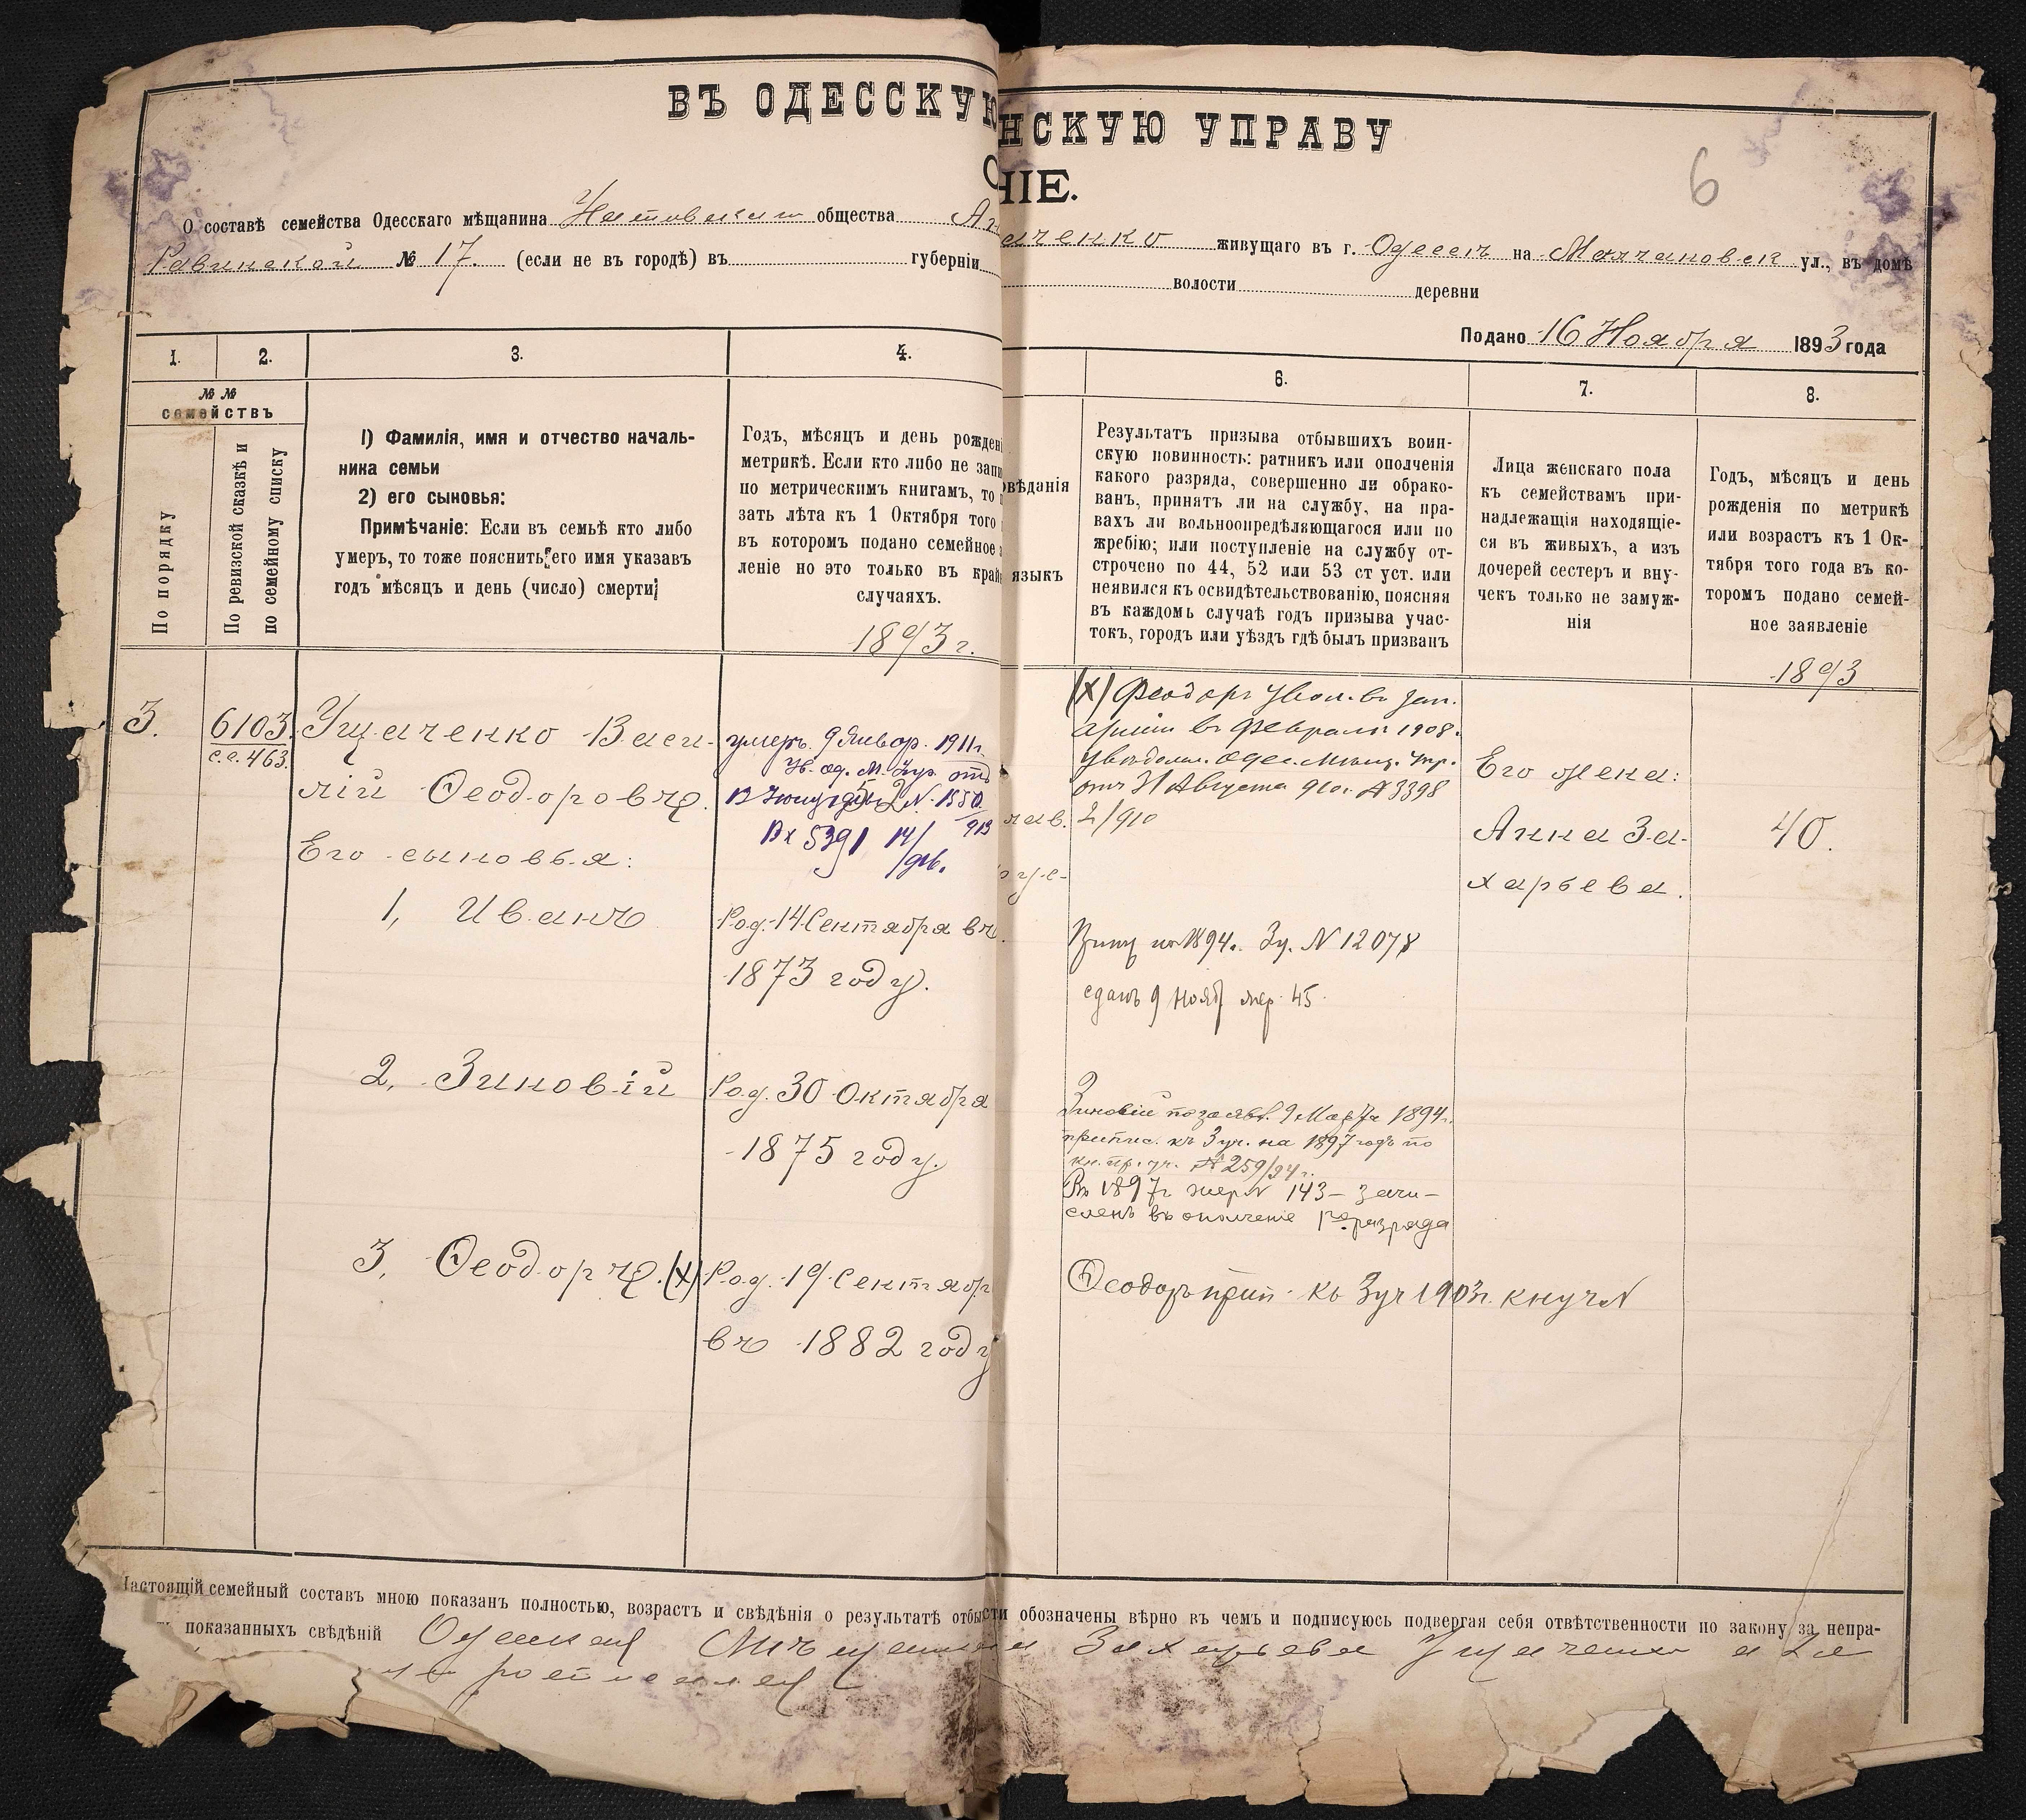 ВЪ ОДЕССКУЮ
НСКУЮ УПРАВУ
НІЕ.
6
О составѣ семейства Одесскаго мѣщанина общества
аченко живущаго въ г. Одессѣ на Молчановск ул., въ домѣ
Равинской № 17. (если не въ городѣ) въ губерніи
волости деревни
Подано 16 Ноября 1893 года
1. 2. 3. 4.
6. 7. 8.
№ №
семействъ
По порядку
По ревизской сказкѣ и
по семейному списку
1) Фамилія, имя и отчество началь-
ника семьи
2) его сыновья:
Примѣчаніе: Если въ семьѣ кто либо
умеръ, то тоже пояснить его имя указавъ
годъ мѣсяцъ и день (число) смерти;
Годъ, мѣсяцъ и день рожден
метрикѣ. Если кто либо не запи
по метрическимъ книгамъ, то
зать лѣта къ 1 Октября того
въ котором подано семейное
леніе но это только въ край
случаяхъ.
1893 г.
овѣданія
языкъ
Результатъ призыва отбывшихъ воин-
скую повинность: ратникъ или ополченія
какого разряда, совершенно ли обрако-
ванъ, принятъ ли на службу, на пра-
вахъ ли вольноопредѣляющагося или по
жребію; или поступленіе на службу от-
строчено по 44, 52 или 53 ст уст. или
неявился къ освидѣтельствованію, поясняя
въ каждомъ случаѣ годъ призыва учас-
токъ, городъ или уѣздъ гдѣ былъ призванъ
Лица женскаго пола
къ семействамъ при-
надлежащія находящіе-
ся въ живыхъ, а изъ
дочерей сестеръ и вну-
чекъ только не замуж-
нія
Годъ, мѣсяцъ и день
рожденія по метрикѣ
или возрастъ къ 1 Ок-
тября того года въ ко-
торомъ подано семей-
ное заявленіе
1893
3. 6103. Ущаченко Васи-
с.с. 463.
лій Ѳеодоровъ.
Его сыновья:
умеръ. 9 Январ. 1911г.
Ув. од. М. Упр. отъ
N. 1550
913
Вх 5391 14/
1, Иванъ
Род. 14 Сентября въ
1873 году.
2, Зиновій
Род. 30 Октября
1875 году.
3, Ѳеодоръ. (х)
Род. 19 Сентябр
въ 1882 году
(х) Феодоръ увол. въ зап.
арміи въ Февралѣ 1908.
увѣдомл. Одес. Мѣщ. Упр.
отъ 31 Августа 910г. № 3398
2/910
Его жена:
Анна За-
харьева.
40.
на 1894г. 3 у. N 12078
сданъ 9 Нояб жер. 45.
Зиновій по заявл. 9 Марта 1894г.
припис. къ 3 уч. на 1897 годъ по
кн. пр. уч. № 259/94 г.
Въ 1897г жер N 143 – зачи-
сленъ въ ополченіе 1го разряда
Ѳеодоръ прип. къ 3 уч 1903г. кн уч N
Настоящій семейный составъ мною показанъ полностью, возрастъ и свѣдѣнія о результатѣ отбы
сти обозначены вѣрно въ чемъ и подписуюсь подвергая себя отвѣтственности по закону за непра-
показанныхъ свѣдѣній
Захарьева Ущаченко а за